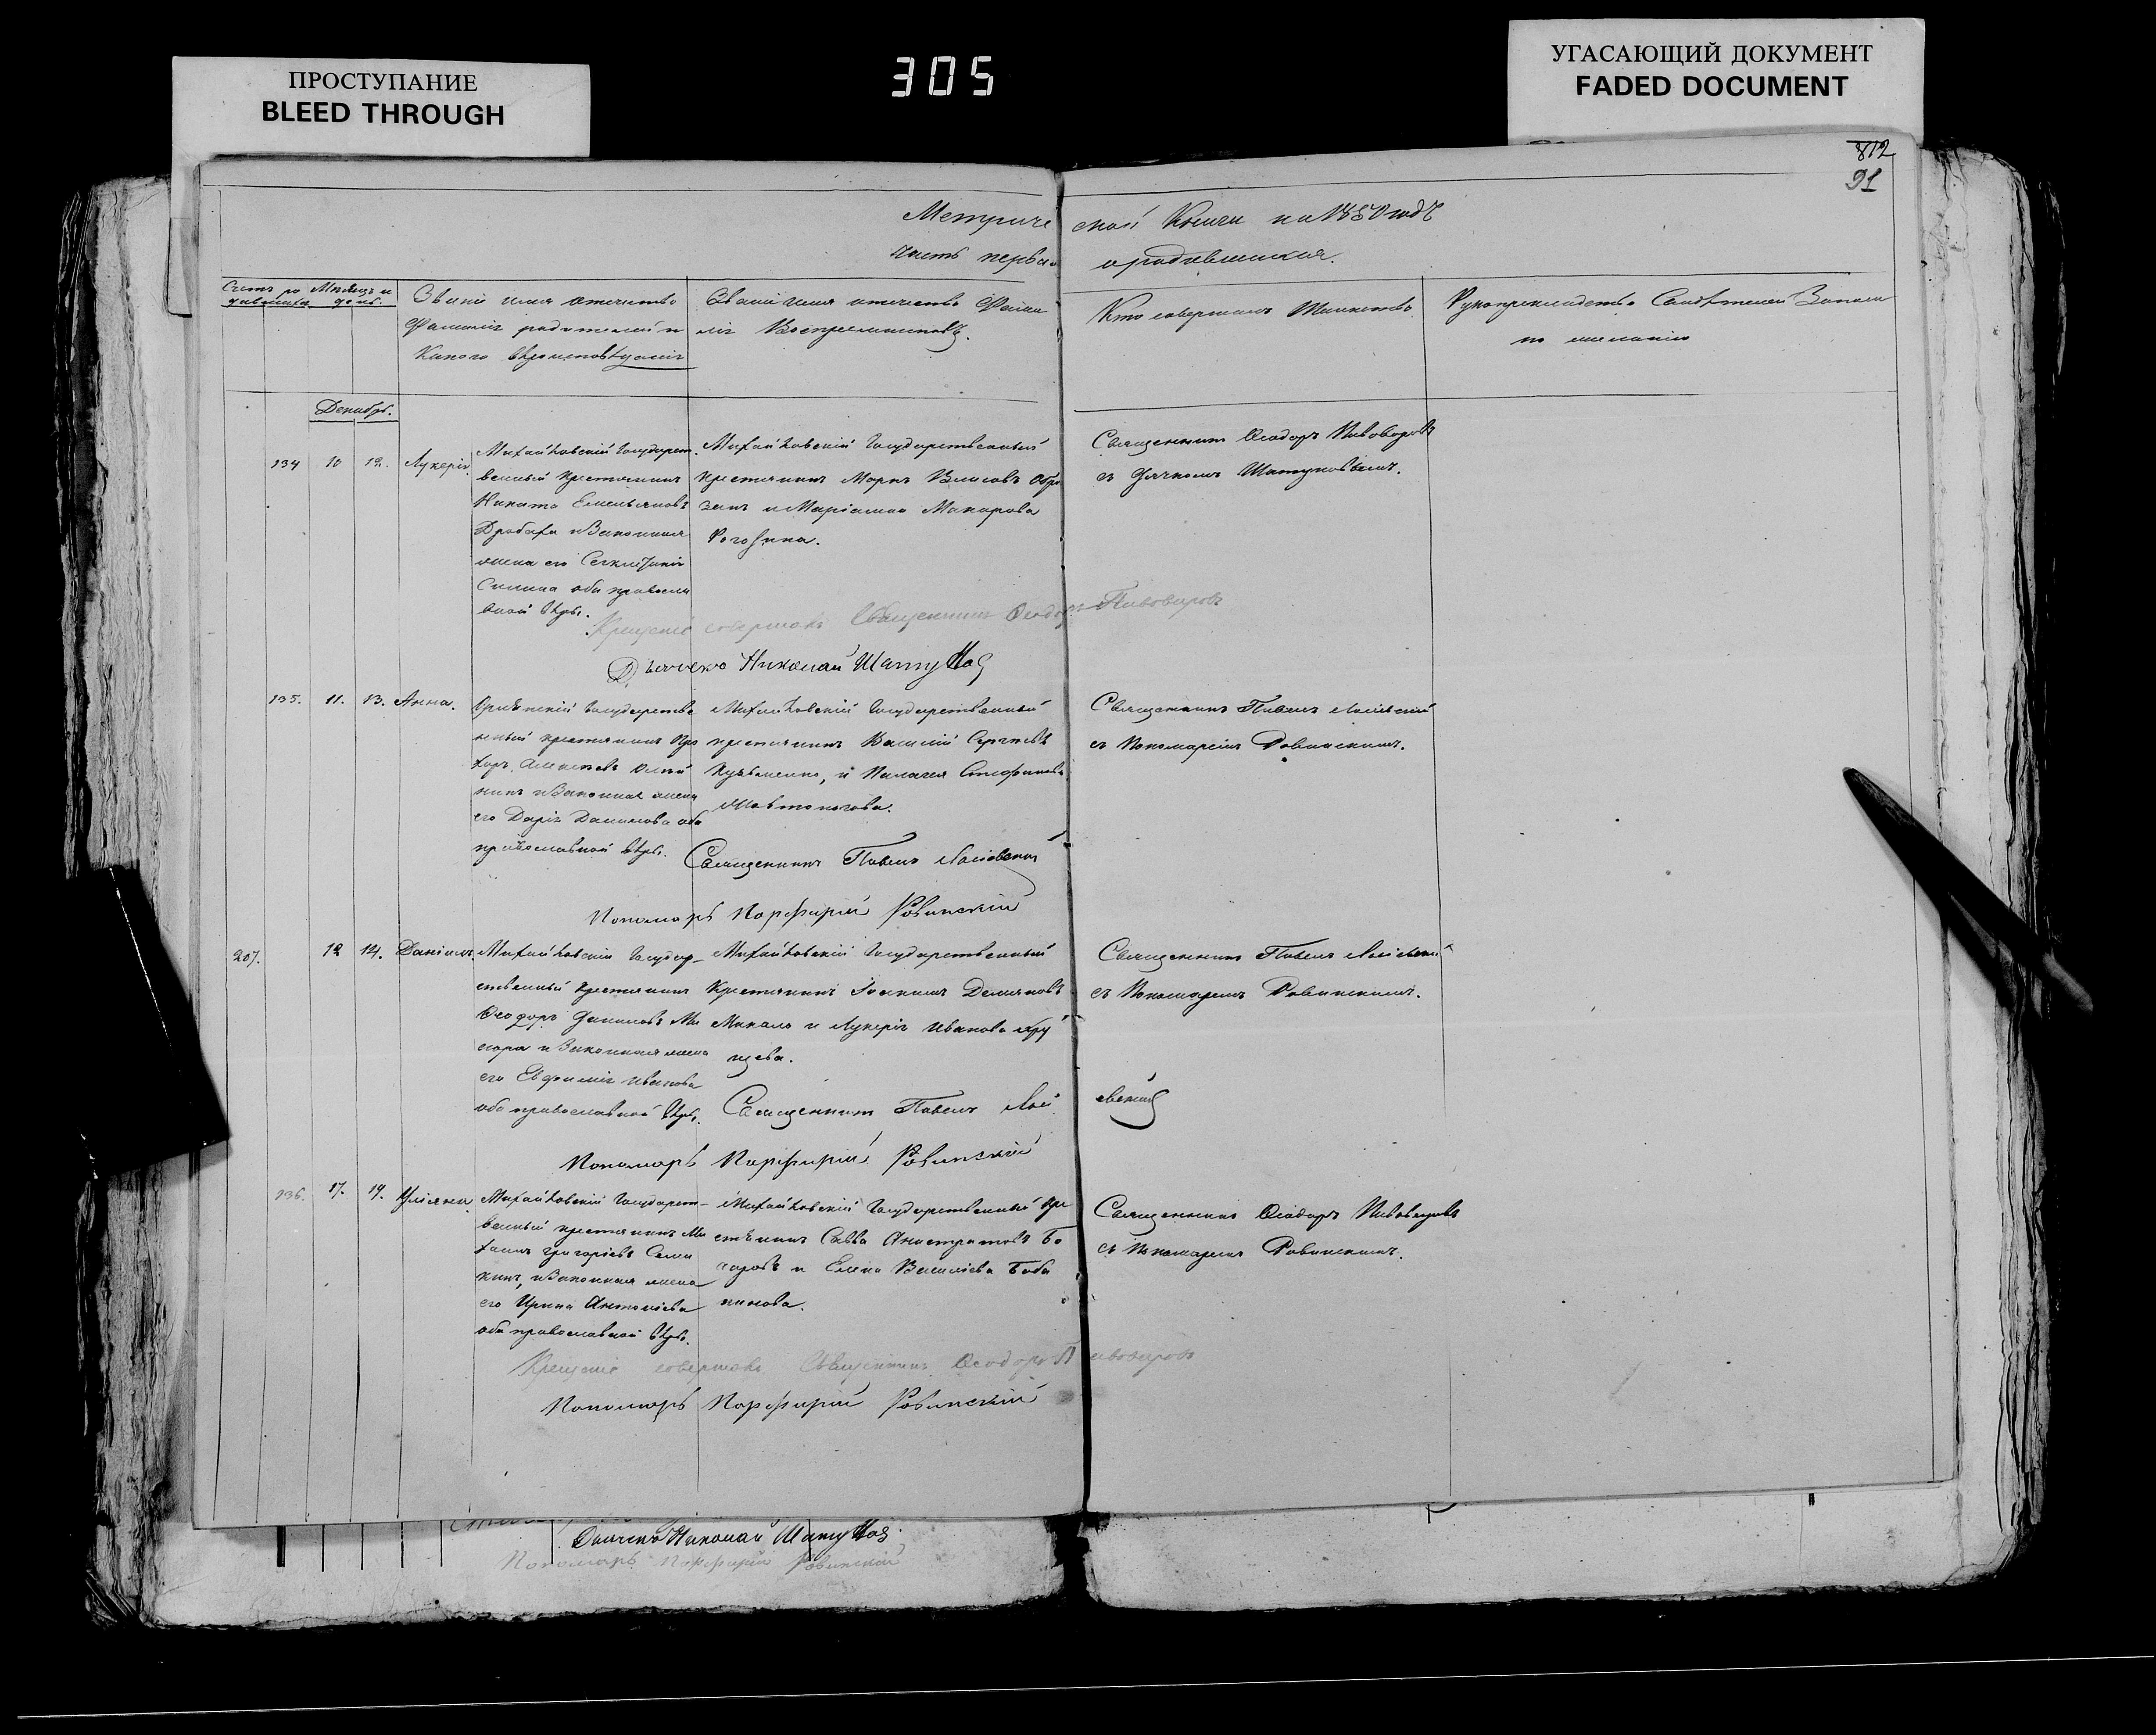 ПРОСТУПАНИЕ
BLEED THROUGH
305
УГАСАЮЩИЙ ДОКУМЕНТ
FADED DOCUMENT
812
91
Метриче ской Книги на 1850 годъ
часть первая о родившихся.
Счетъ ро Мѣсяцъ и
день.
Званіе имя отчество
Фамилія родителей и
Какого вѣроисповѣданія
Званіе имя отчество Фами
лія Воспріемниковъ.
Кто совершалъ Таинство
Рукоприкладство Свидѣтелей Записи
по желанію
Декабрь.
134 10 12. Лукерія.
Михайловскій Государст
венный Крестьянинъ
Никита Емельяновъ
Дробаха и Законная
жена его
оби правосла
вной Вѣры.
Михайловскій Государственный
Крестьянинъ Маркъ Власовъ
и Маріамна Макарова
Священникъ Ѳеодоръ Пивоваровъ
съ Дячкомъ
Крещеніе совершалъ Священникъ Ѳеодоръ Пивоваровъ
Дьячекъ Николай
135. 11. 13. Анна.
Государстве
нный крестьянинъ Про
хоръ Алексѣевъ
и Законная жена
его Дарія Данилова оба
православной вѣры.
Михайловскій Государственный
крестьянинъ Василій Сергѣевъ
Кузьменко, и Пелагея Стефанова
Священникъ Павелъ
съ Пономаремъ Ровинскимъ.
Священникъ Павелъ
Пономарь Порфирій Ровинскій
207. 12 14. Даніилъ.
Михайловскій Государ-
ственный Крестьянинъ
Ѳеодоръ Даниловъ
и Законная жена
его Евфимія Иванова
оба православной Вѣры.
Михайловскій Государственный
Крестьянинъ Іоакимъ Демяновъ
и Лукерія Иванова
Священникъ Павелъ
съ Пономаремъ Ровинскимъ.
Священникъ Павелъ
Пономарь Порфирій Ровинскій
136. 17. 19. Уліяна.
Михайловскій Государст-
венный крестьянинъ Ми
хаилъ Григорьевъ Сема
кинъ, и Законная жена
его Ирина Антоніева
оба православной вѣры.
Михайловскій Государственный Кре
стьянинъ Савва Анистратовъ Бо
чаровъ и Елена Васильева
Священникъ Ѳеодоръ Пивоваровъ
съ Пономаремъ Ровинскимъ.
Крещеніе совершалъ Священникъ Ѳеодоръ Пивоваровъ
Пономарь Порфирій Ровинскій
Дьячекъ Николай
Пономарь Порфирій Ровинскій